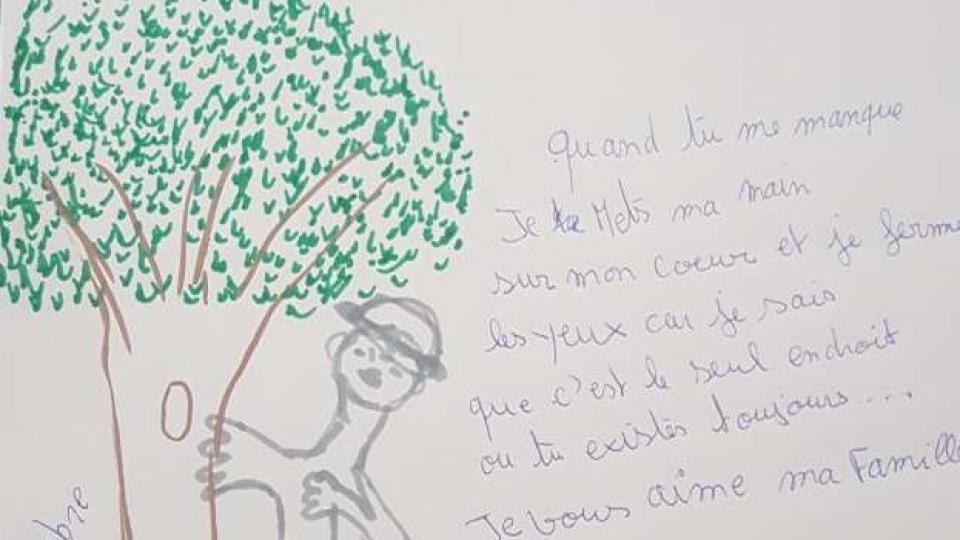 Quand tu me manque
Je Mets ma main
sur mon coeur et je ferme
les yeux car je sais
que c'est le seul endroit
ou tu existes toujours....
Je vous aime ma Famille
bre